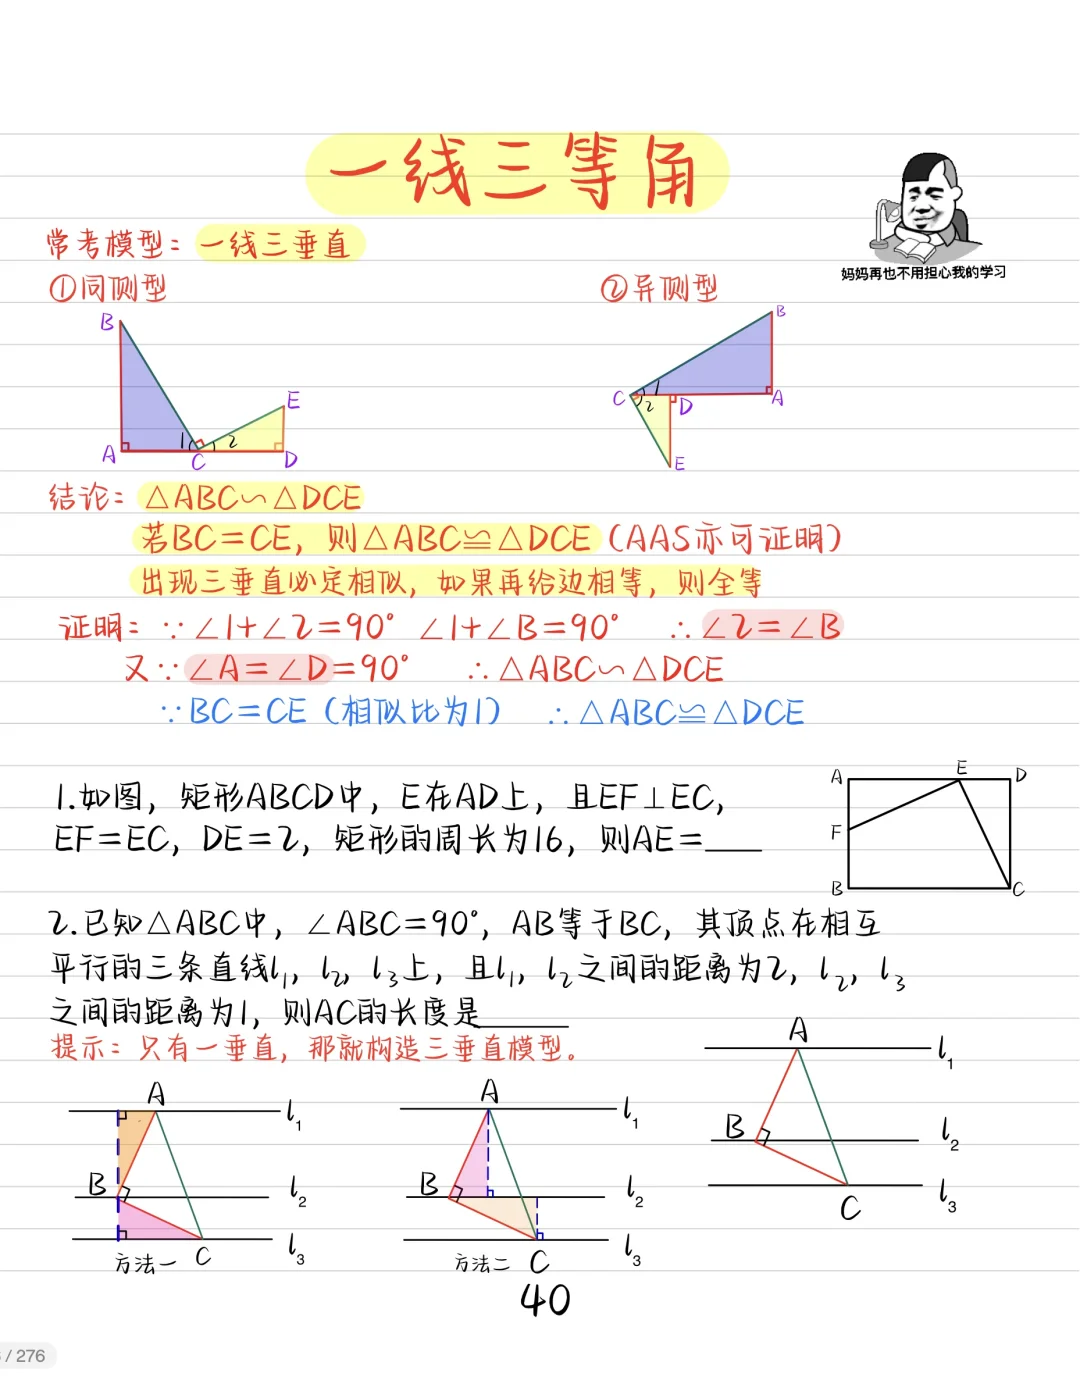 一线三等角
常考模型：一线三垂直
妈妈再也不用担心我的学习
①同侧型
②异侧型
B
E
A
C
D
1
2
B
C
D
A
E
1
2
结论：△ABC∽△DCE
若BC=CE，则△ABC≌△DCE（AAS亦可证明）
出现三垂直必定相似，如果再给边相等，则全等
证明：∵∠1+∠2=90° ∠1+∠B=90° ∴∠2=∠B
又∵∠A=∠D=90° ∴△ABC∽△DCE
∵BC=CE（相似比为1） ∴△ABC≌△DCE
1.如图，矩形ABCD中，E在AD上，且EF⊥EC，
EF=EC，DE=2，矩形的周长为16，则AE=____
A
E
D
F
B
C
2.已知△ABC中，∠ABC=90°，AB等于BC，其顶点在相互
平行的三条直线l₁，l₂，l₃上，且l₁，l₂之间的距离为2，l₂，l₃
之间的距离为1，则AC的长度是______
提示：只有一垂直，那就构造三垂直模型。
A
l₁
B
l₂
C
l₃
方法一
A
l₁
B
l₂
C
l₃
方法二
A
l₁
B
l₂
C
l₃
40
/ 276